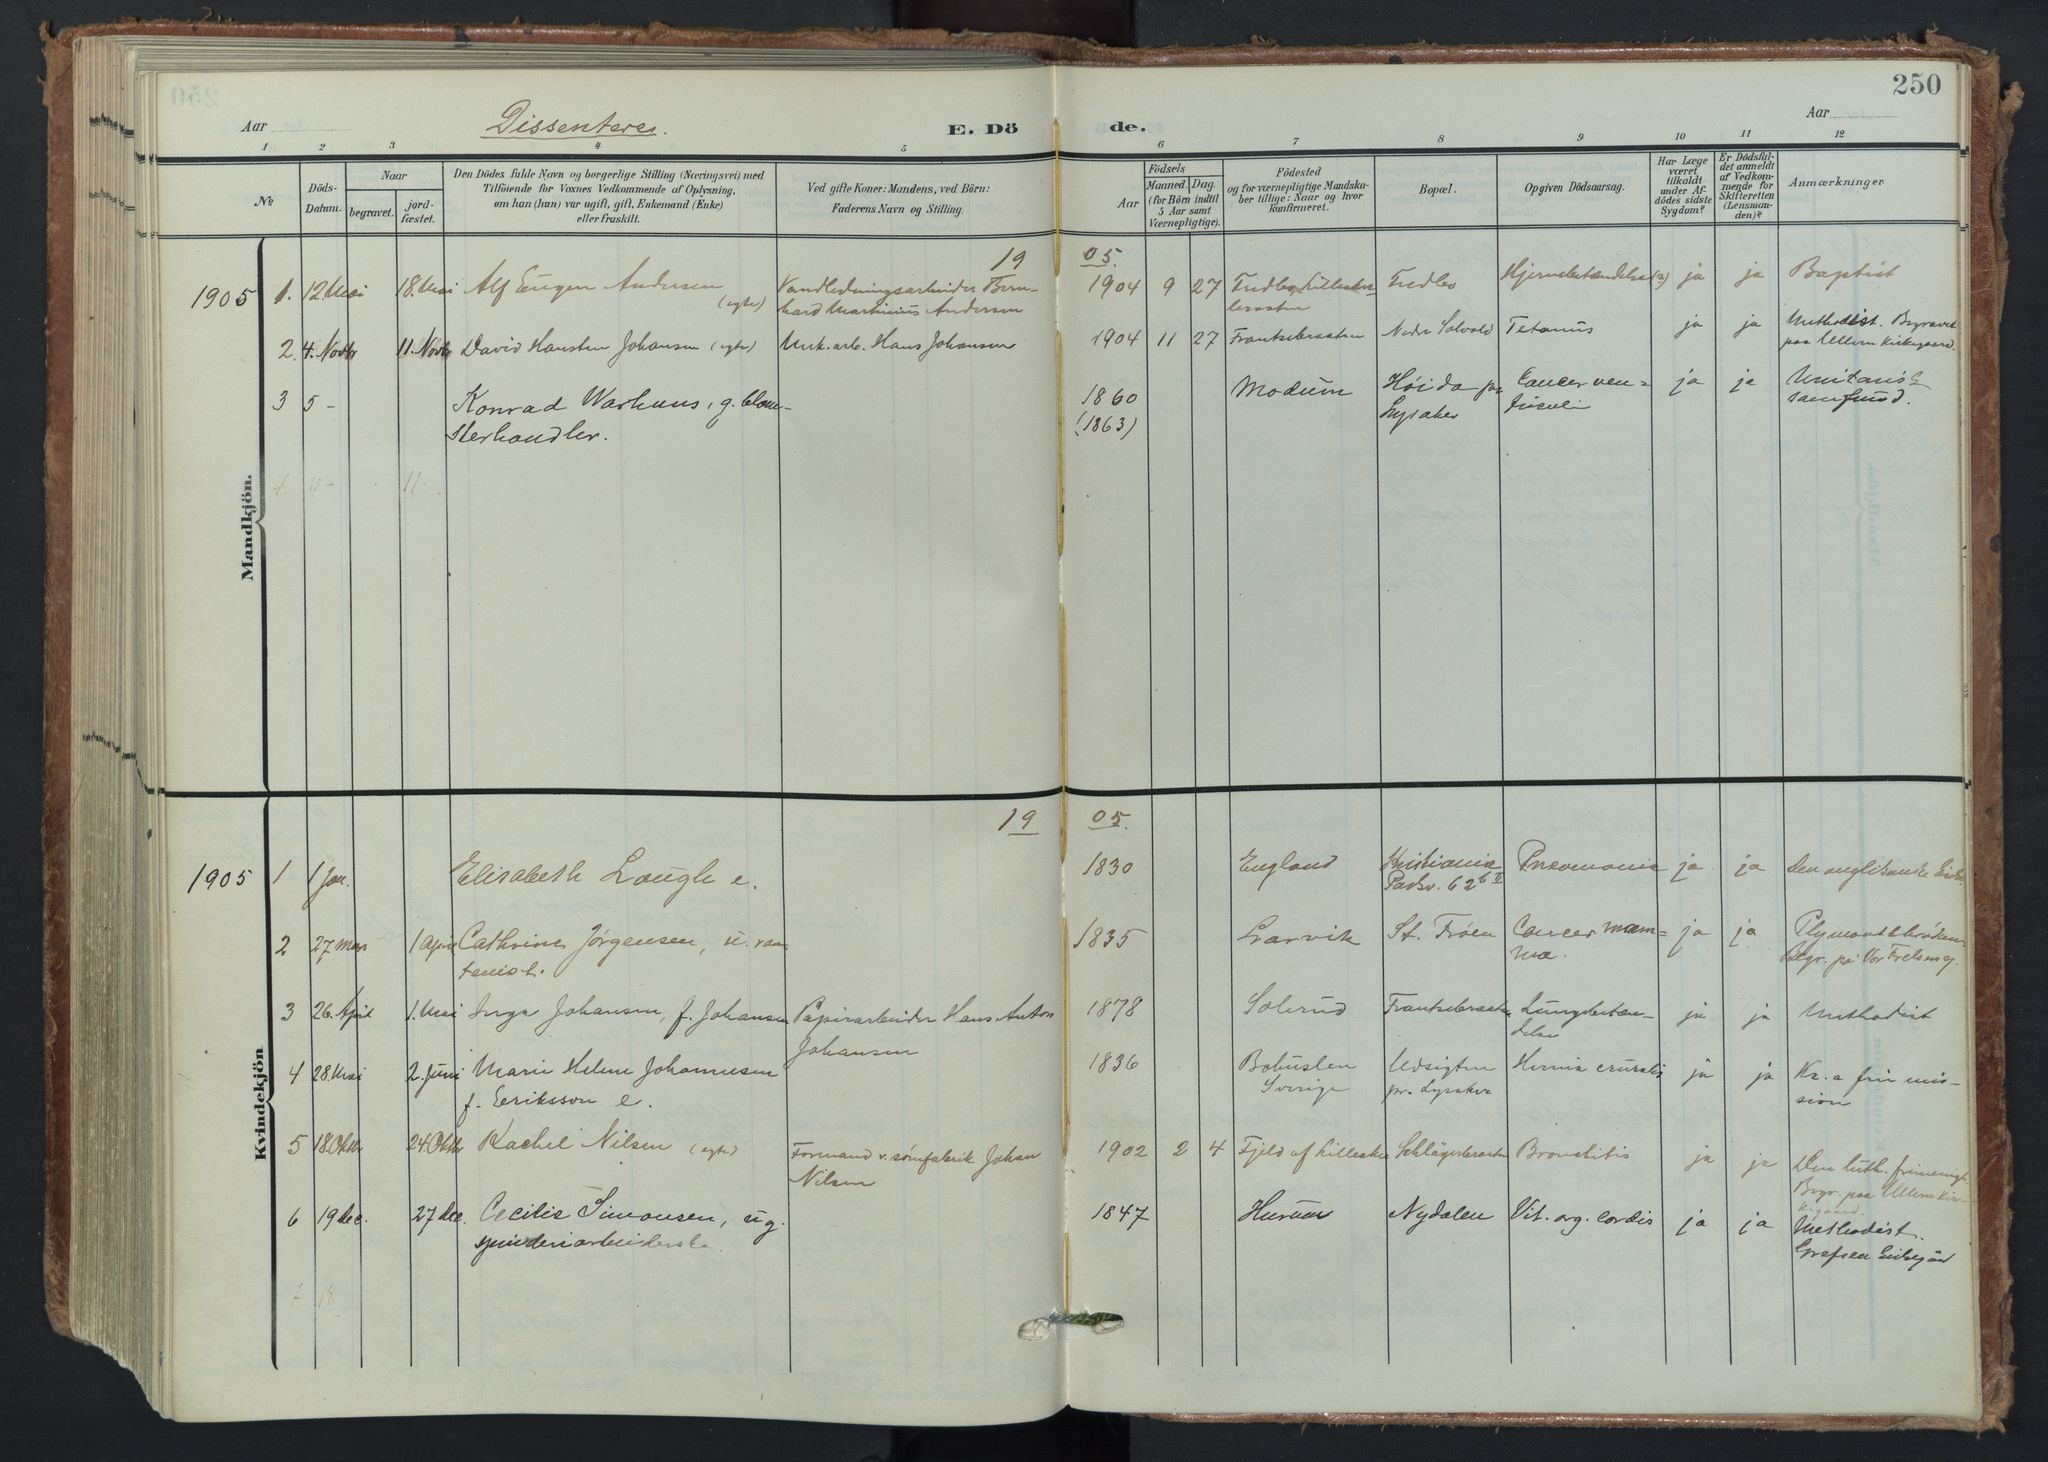 250
Aar
Dissentere.
E. Dö
de.
Aar
1 2 3 4 5 6 7 8 9 10 11 12
№
Döds-
Datum.
Naar
begravet.
jord-
fæstet.
Den Dödes fulde Navn og borgerlige Stilling (Næringsvei) med
Tilföiende for Voxnes Vedkommende af Oplysning,
om han (hun) var ugift, gift, Enkemand (Enke)
eller fraskilt.
Ved gifte Koner: Mandens, ved Börn:
Faderens Navn og Stilling.
Födsels
Aar
Maaned. Dag.
(for Börn indtil
5 Aar samt
Værnepligtige).
Födested
og for værnepligtige Mandska-
ber tillige: Naar og hvor
konfirmeret.
Bopæl.
Opgiven Dödsaarsag.
Har Læge
været
tilkaldt
under Af-
dödes sidste
Sygdom?
Er Dödsfal-
det anmeldt
af Vedkom-
mende for
Skifteretten
(Lensman-
den)?
Anmærkninger
Mandkjön.
19 05.
1905 1. 12 Mai 18. Mai Alf Eugen Andersen (egte) Vandledningsarbeider Bern-
hard Martinius Andersen 1904 9 27 Hjernebetændelse (?) ja ja Baptist
2. 4. Novbr 11. Novbr David Hansten Johansen (egte) Murk. arb. Hans Johansen 1904 11 27 Frantsebraaten Nedre Solvold Tetanus ja ja Methodist. Begravet
paa Ullern Kirkegaard.
3 5 - Konrad Warhuus, g. blom-
sterhandler. 1860
(1863) Modum Høida pr
Lysaker Cancer ven-
triculi ja ja Unitarisk
samfund.
4. 4 - 11.
Kvindekjön
19 05.
1905 1 1 Jan. Elisabeth Lough e. 1830 England Kristiania
Parkv. 62 Pneumonia ja ja Den anglikanske Kirke.
2 27 Mars 1 April Cathrine Jørgensen, u.
1835 Larvik St. Frøen Cancer mam-
ma. ja ja
Begr. på Vor Frelsers g.
3 26. April 1. Mai Inga Johansen, f. Johansen Papirarbeider Hans Anton
Johansen 1878 Solerud Frantsebraaten Lungebetæn-
delse ja ja Methodist
4 28. Mai 2. Juni Marie Helene Johannesen
f. Eriksson e. 1836 Bohuslen
Sverige Udsigten
pr. Lysaker Hernia cruralis ja ja Kr.a fri mis-
sion
5 18. Oktbr 24. Oktbr Rachel Nilsen (egte) Formand v. sømfabrik Johan
Nilsen 1902 2 4 Fjeld af Lilleaker Schlägerbraaten Bronchitis ja ja Den luth. frimenigh.
Begr. paa Ullern Kir-
kegaard.
6 19 dec. 27 dec. Cecilie Simonsen, ug.
spinderiarbeiderske 1847 Hurum Nydalen Vit. org. cordis ja ja Methodist.
Grefsen Kirkegård
7 18